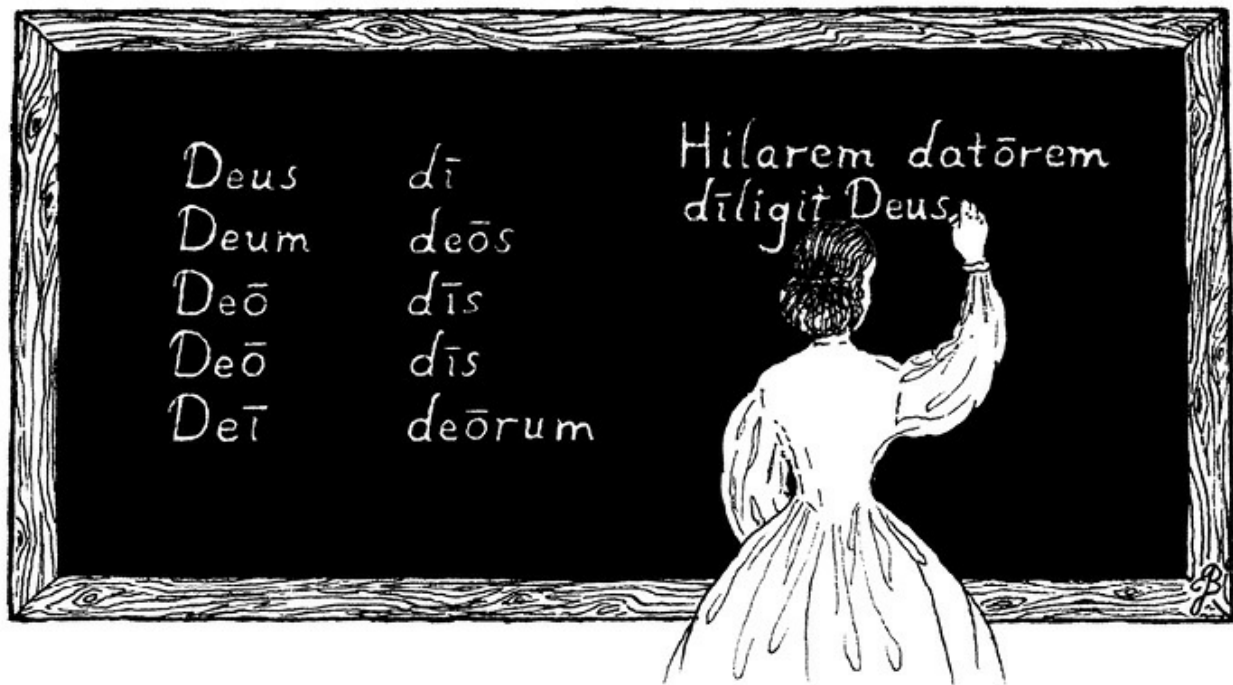 Deus dī
Deum deōs
Deō dīs
Deō dīs
Deī deōrum
Hilarem datōrem
dīligit Deus